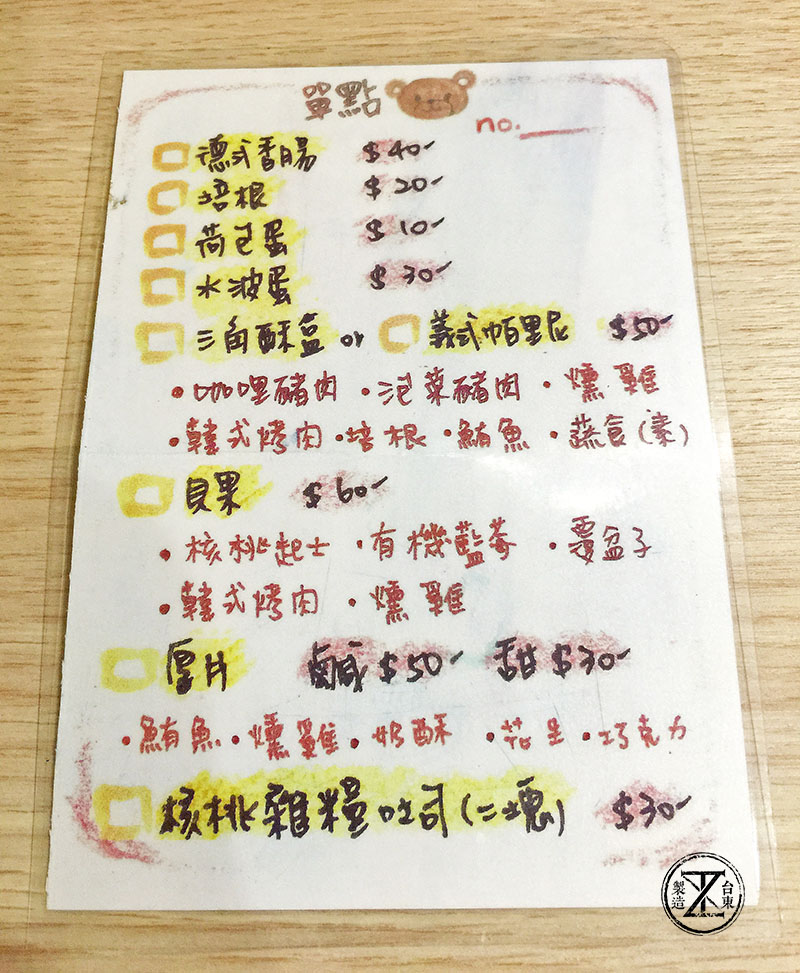 單點
no.
德式香腸 $40-
培根 $20-
荷包蛋 $10-
水波蛋 $30-
三角酥盒 or 義式帕里尼 $50-
・咖哩豬肉 ・泡菜豬肉 ・燻雞
・韓式烤肉 ・培根 ・鮪魚 ・蔬食(素)
貝果 $60-
・核桃起士 ・有機藍莓 ・覆盆子
・韓式烤肉 ・燻雞
厚片 鹹$50- 甜$30-
・鮪魚 ・燻雞 ・奶酥 ・花生 ・巧克力
核桃雜糧吐司(二塊) $30-
台東製造